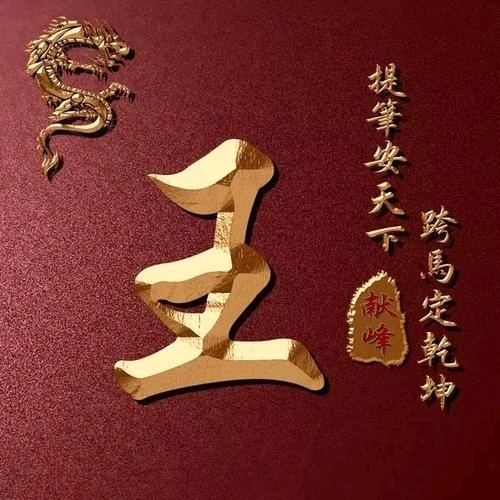 王
提筆安天下
跨馬定乾坤
献峰